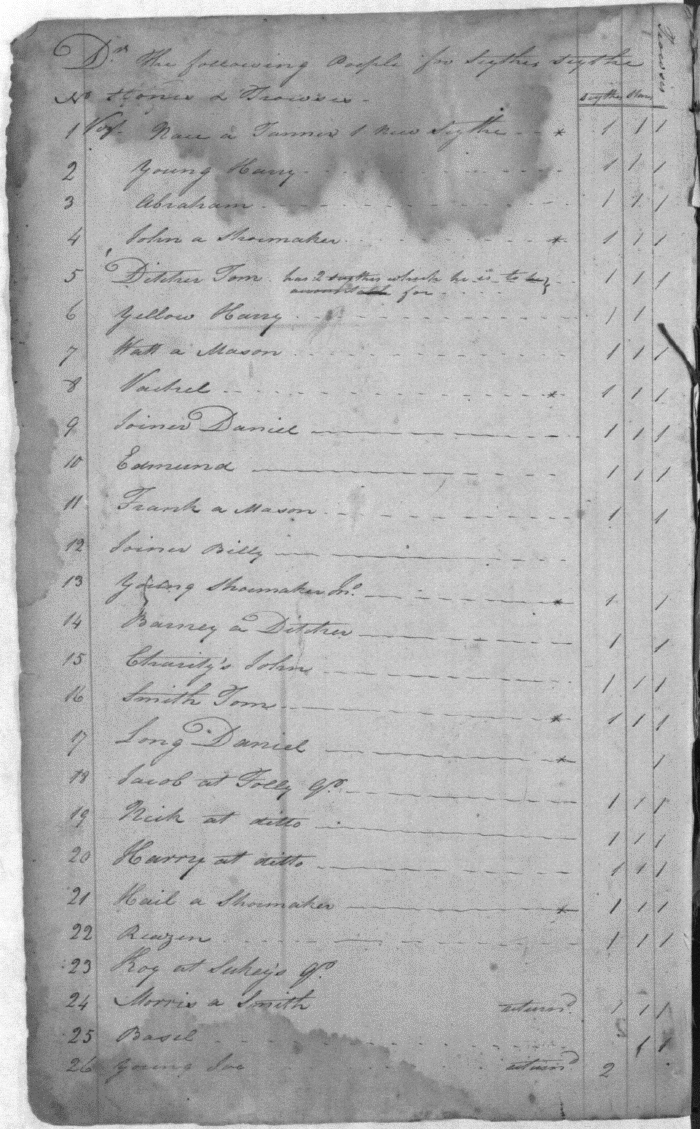 Trowsers
Dr. The following People for Scythes Scythe
No Stones & Trowsers
Scythe Stone
1 Nace a Tanner 1 New Scythe * 1 1 1
2 Young Harry 1 1 1
3 Abraham 1 1 1
4 John a Shoemaker * 1 1 1
5 Ditcher Tom has 2 scythes which he is to be 1 1 1
accountable for
6 Yellow Harry 1 1
7 Watt a Mason 1 1 1
8 Vachel * 1 1 1
9 Joiner Daniel 1 1 1
10 Edmund 1 1 1
11 Frank a Mason 1 1
12 Joiner Billy
13 Young Shoemaker Jno. * 1 1
14 Barney a Ditcher 1 1
15 Charity's John 1 1 1
16 Smith Tom * 1 1 1
17 Long Daniel * 1
18 Jacob at Folly Qr. 1 1 1
19 Nick at ditto 1 1 1
20 Harry at ditto 1 1 1
21 Hail a Shoemaker * 1 1 1
22 Reazen 1 1 1
23 Roy at Sukey's Qr.
24 Morris a Smith returnd 1 1 1
25 Basel 1 1
26 Young Joe returnd 2